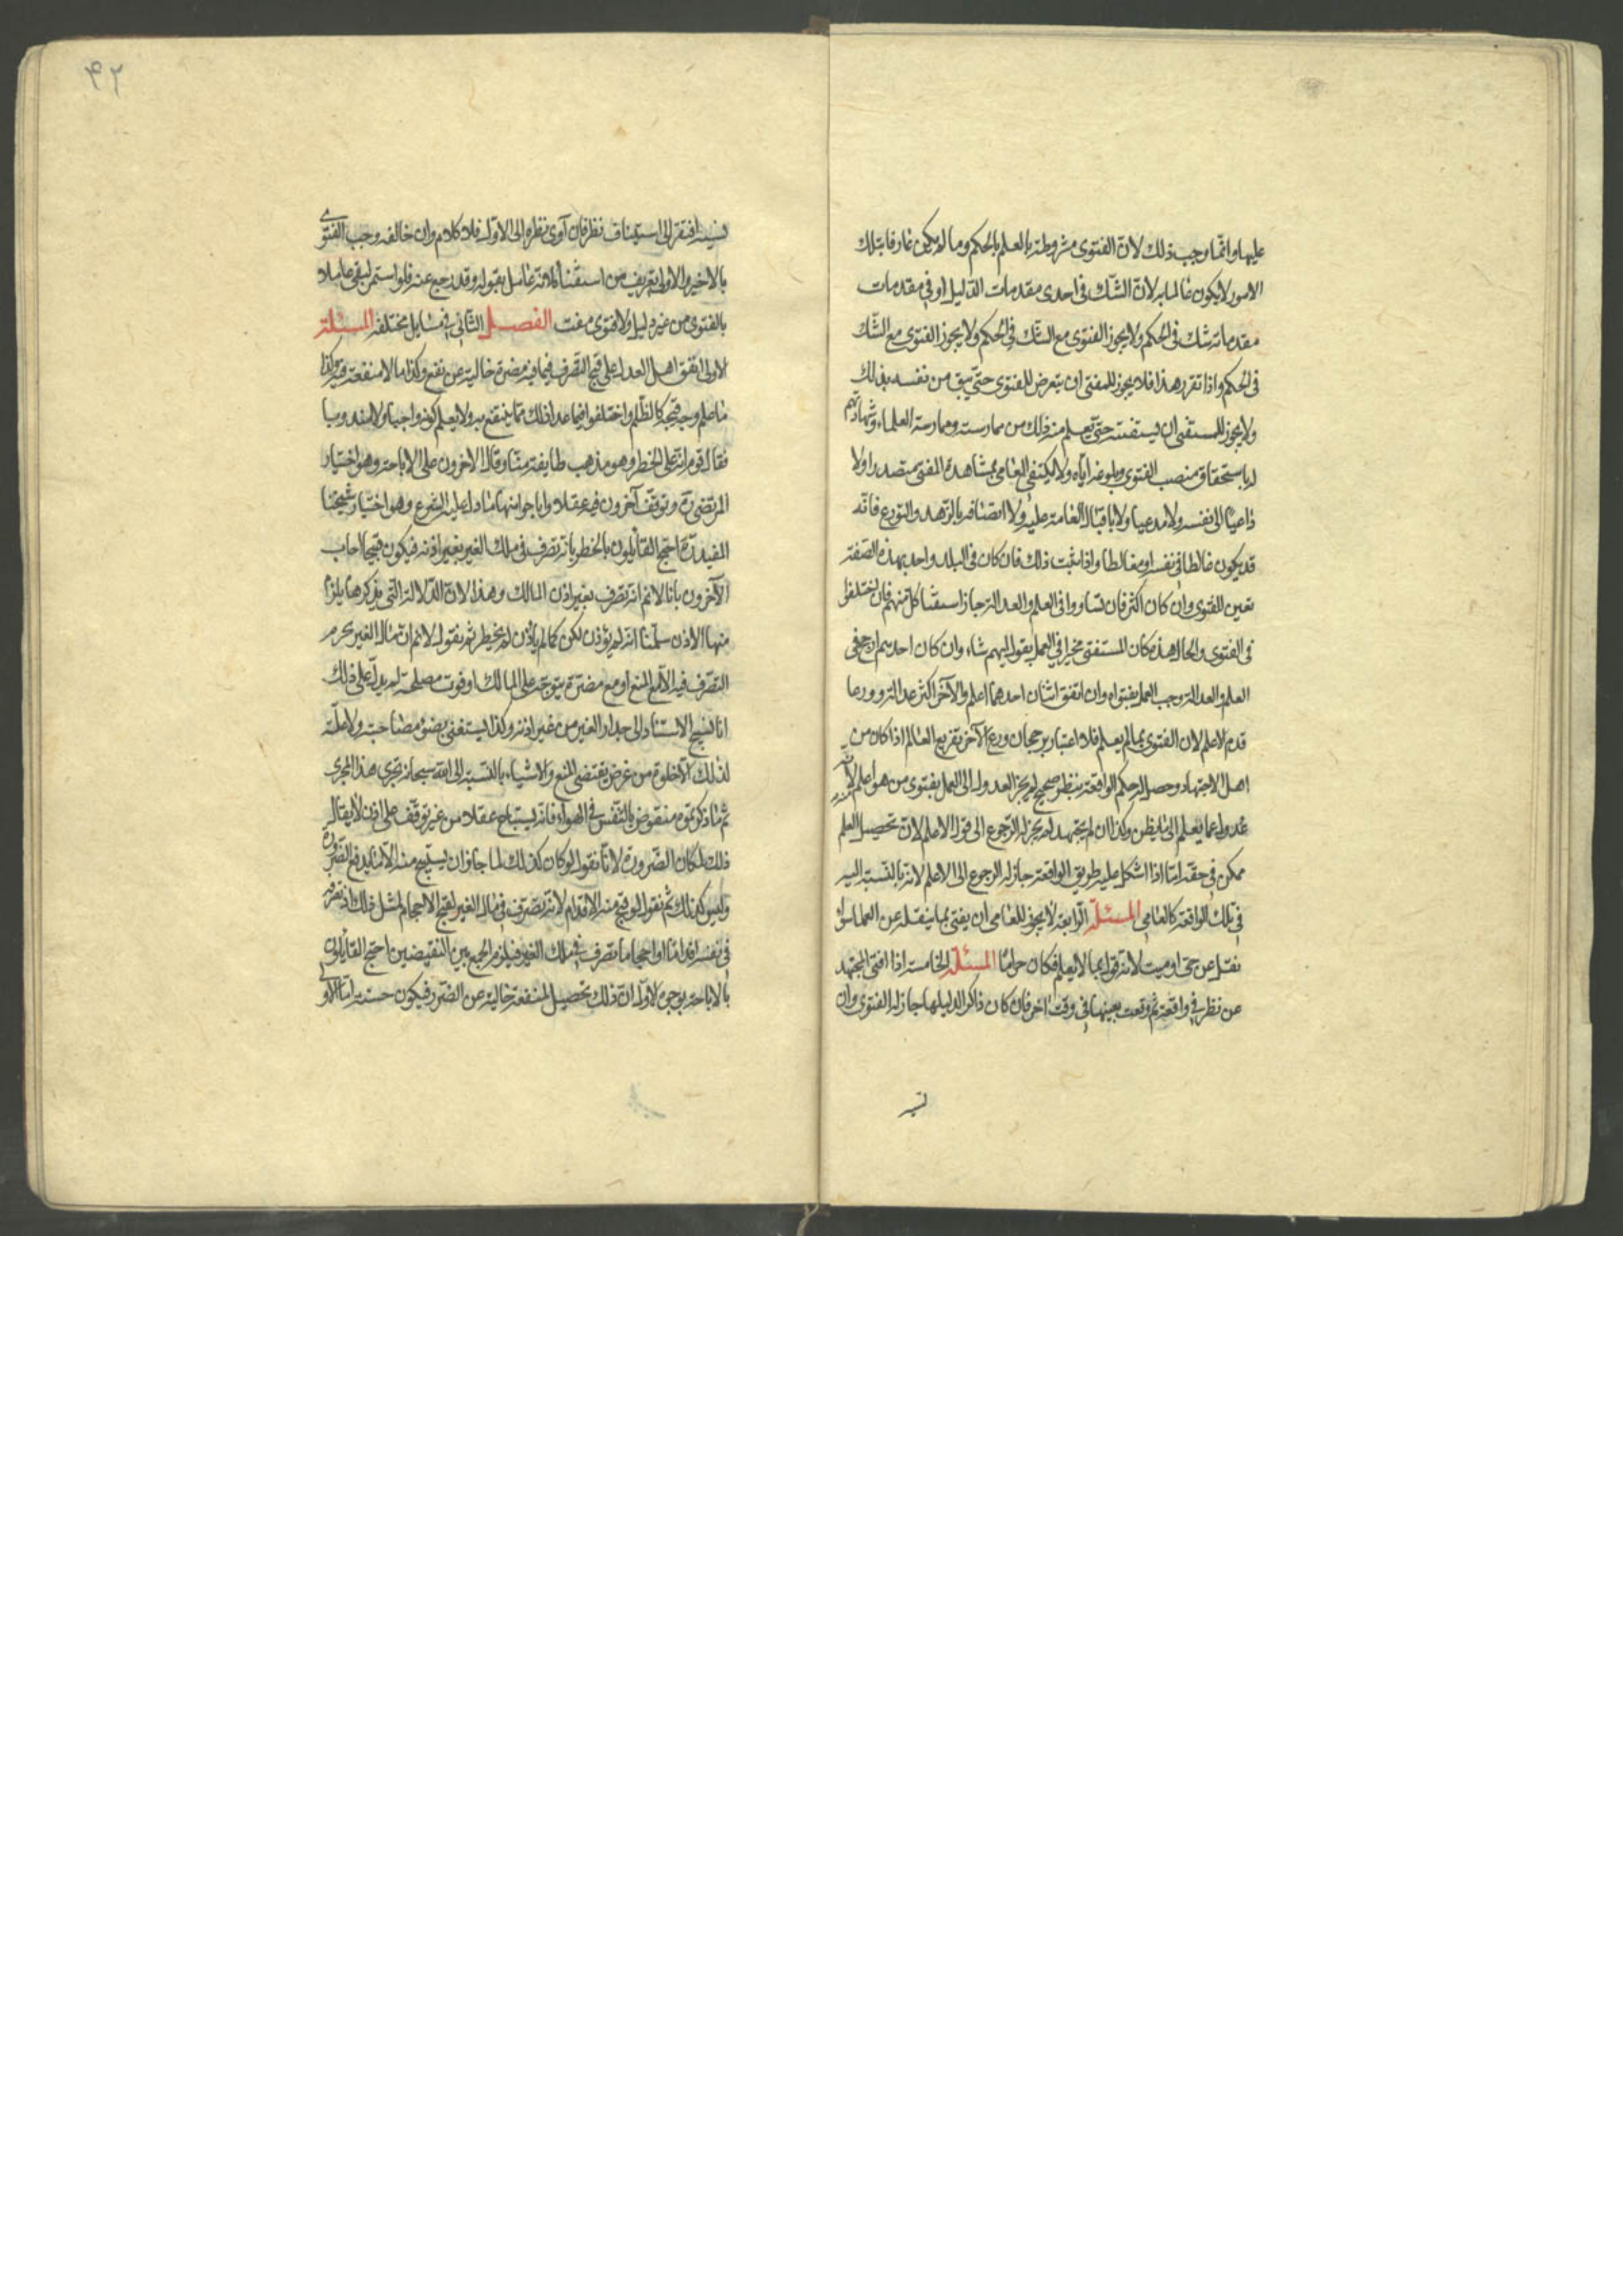 عليها وانّما وجب ذلك لانّ الفتوى مشروطة بالعلم بالحكم وما لم يكن عارفا بتلك
الامور لا يكون عالما به لانّ الشّك فى احدى مقدمات الدّليل او فى مقدمات
مقدماته شك فى الحكم ولا يجوز الفتوى مع الشّك فى الحكم ولا يجوز الفتوى مع الشّك
فى الحكم واذا تقرر هذا فلا يجوز للمفتى ان يتعرض للفتوى حتّى يثق من نفسه بذلك
ولا يجوز للمستفتى ان يستفتيه حتّى يعلم منه ذلك من ممارسته وممارسة العلماء وشهادتهم
له باستحقاق منصب الفتوى وبلوغه ايّاه ولا يكتفى العامى بمشاهدة المفتى متصدرا ولا
داعيًا الى نفسه ولا مدعيا ولا باقبال العامة عليه ولا اتصافه بالزّهد والتورع فانّه
قد يكون غالطا فى نفسه او مغالطا واذا ثبت ذلك فان كان فى البلد واحد بهذه الصّفة
تعين للفتوى وان كان اكثر فان تساووا فى العلم والعدالة جاز استفتاء كلّ منهم فان اختلفوا
فى الفتوى والحال هذه كان المستفتى مخيرا فى العمل بقول ايهم شاء وان كان احدهم ارجح فى
العلم والعدالة وجب العمل بفتواه وان اتفق اثنان احدهما اعلم والآخر اكثر عدالة وورعا
قدم الاعلم لان الفتوى بما لم يعلم فلا اعتبار برجحان ورع الآخر تفريع العالم اذا كان من
اهل الاجتهاد وحصل له حكم الواقعة بنظر صحيح لم يجز العدول الى العمل بفتوى من هو اعلم لانّه
عدول عما يعلم الى ما يظن وكذا ان لم يجتهد لم يجز له الرّجوع الى قول الاعلم لانّ تحصيل العلم
ممكن فى حقّه امّا اذا اشكل عليه طريق الواقعة جاز له الرجوع الى الاعلم لانه بالنّسبة اليه
فى تلك الواقعة كالعامى المسئلة الرّابعة لا يجوز للعامى ان يفتى بما ينقله عن العلماء سواء
نقل عن حىّ او ميت لانه قول بما لا يعلم فكان حرامًا المسئلة الخامسة اذا افتى المجتهد
عن نظر فى واقعة ثم وقعت بعينها فى وقت اخر فان كان ذاكرا لدليلها جاز له الفتوى وان
نسيه
٤٢
نسيه افتقر الى استيناف نظر فان ادّى نظره الى الاوّل فلا كلام وان خالفه وجب الفتوى
بالاخير والاولى تعريف من استفتاه لانّه عامل بقوله وقد رجع عنه فلو استمر لبقى عاملا
بالفتوى من غير دليل ولا فتوى مفت الفصل الثّانى فى مسايل مختلفة المسئلة
الاولى اتفق اهل العدل على قبح التصّرف فيما فيه مضرة خالية عن نفع وكذا ما لا منفعة فيه وكذا
ما علم وجه قبحه كالظّلم واختلفوا فيما عدا ذلك ممّا ينتفع به ولا يعلم كونه واجبا ولا مندوبا
فقال قوم انّه على الحظر وهو مذهب طايفة منّا وقال الآخرون على الاباحة وهو اختيار
المرتضى ره وتوقّف آخرون فيه عقلا واباحوا منها ما دل عليه الشرع وهو اختيار شيخنا
المفيد ره احتج القائلون بالحظر بانّه تصرف فى ملك الغير بغير اذنه فيكون قبيحا اجاب
الآخرون بانا لا نم انه تصرف بغير اذن المالك وهذا لانّ الدّلالة التى نذكرها يلزم
منها الاذن سلّمنا انّه لم يؤذن لكن كما لم يأذن لم يحظر ثم نقول لا نم ان مال الغير يحرم
التّصرف فيه الّا مع المنع او مع مضرّة يتوجّه على المالك او فوت مصلحة له يدلّ على ذلك
انا نستبيح الاستناد الى جدار الغير من غير اذنه وكذا يستغنى بضوء مصباحه ولا علّة
لذلك الّا خلوه من غرض يقتضى المنع والاشياء بالنّسبة الى اللّه سبحانه تجرى هذا المجرى
ثم ما ذكرتموه منقوض بالتّنفس فى الهواء فانّه يستباح عقلا من غير توقّف على اذن لا يقال
ذلك لمكان الضّرورة لانّا نقول لو كان كذلك لما جاز ان يستبيح منه الّا ما يدفع الضّرورة
وليس كذلك ثم نقول لو قبح منه الاقدام لانه تصرّف فى مال الغير لقبح الاحجام لمثل ذلك اذ تصرفه
فى نفسه اقداما او احجاما تصرف فى ملك الغير فيلزم الجمع بين النّقيضين احتج القائلون
بالاباحة بوجوه الاوّل انّ ذلك تحصيل المنفعة خالية عن الضّرر فيكون حسنة امّا الاولى